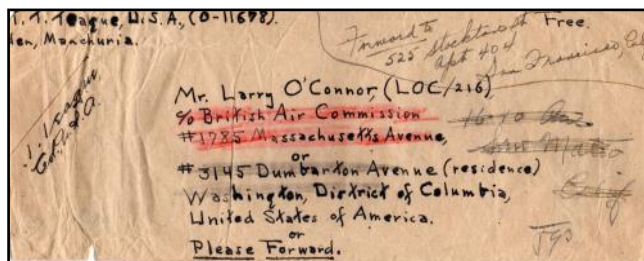 T. T. Teague, U.S.A., (O-11678).
Manchuria.
Free.
Forward to
525 Stockton St
apt 404
San Francisco, Calif
Mr. Larry O'Connor, (LOC/216),
% British Air Commission
#1785 Massachusetts Avenue,
or
#3145 Dumbarton Avenue (residence)
Washington, District of Columbia,
United States of America.
or
Please Forward.
San Mateo
Calif